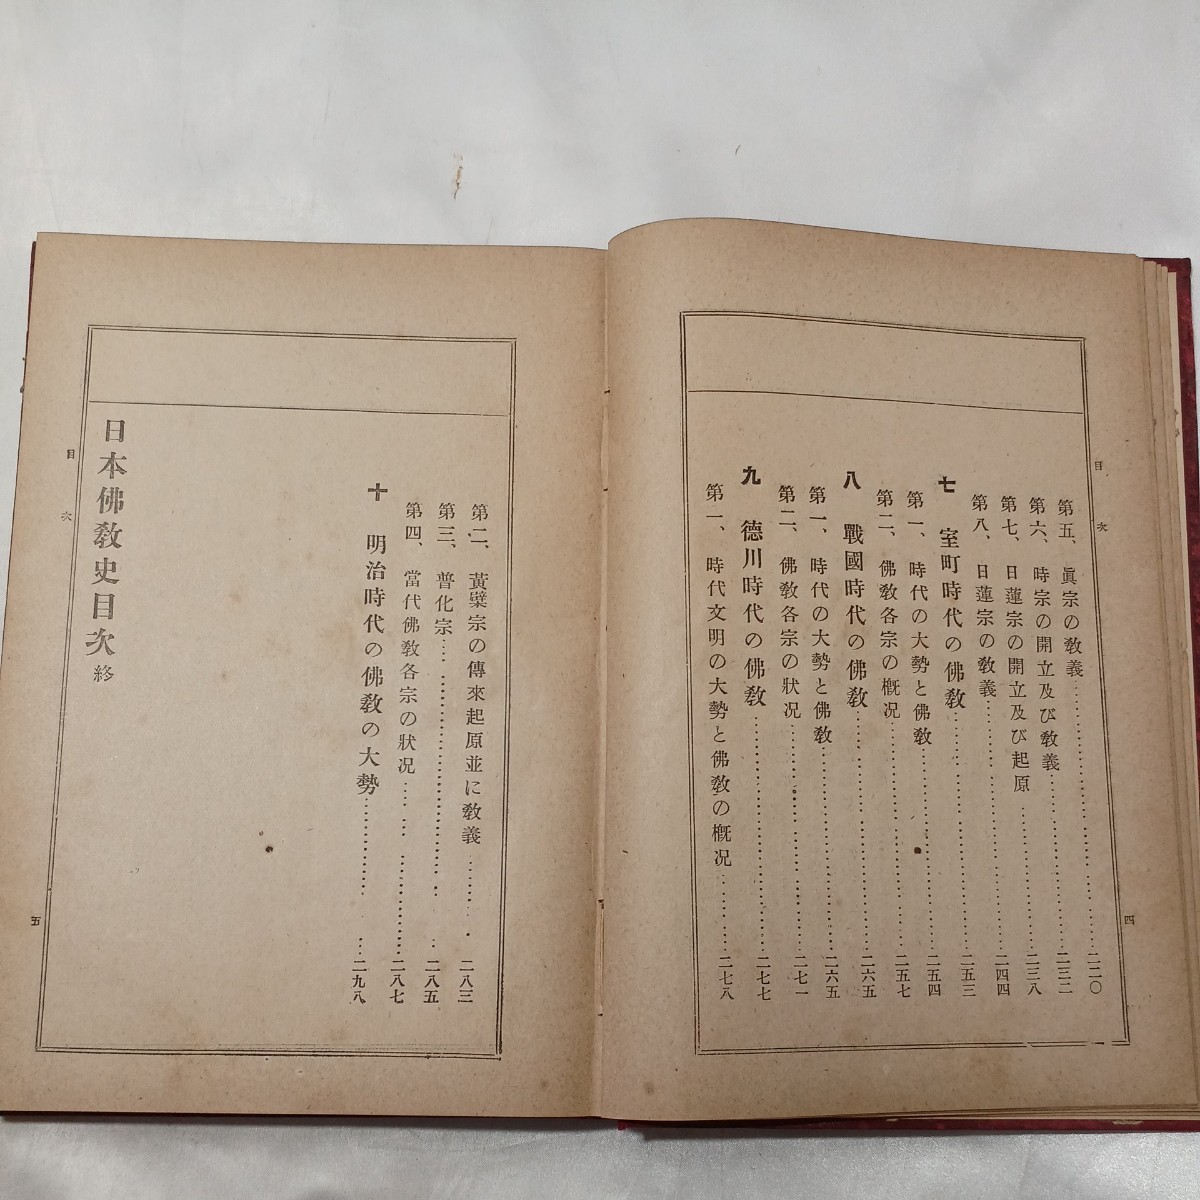 目次
第五、眞宗の敎義……二二〇
第六、時宗の開立及び敎義……二三二
第七、日蓮宗の開立及び起原……二三八
第八、日蓮宗の敎義……二四四
七 室町時代の佛敎……二五三
第一、時代の大勢と佛敎……二五四
第二、佛敎各宗の槪况……二五七
八 戰國時代の佛敎……二六五
第一、時代の大勢と佛敎……二六五
第二、佛敎各宗の狀况……二七一
九 德川時代の佛敎……二七七
第一、時代文明の大勢と佛敎の槪况……二七八
四
第二、黃檗宗の傳來起原並に敎義……二八三
第三、普化宗……二八五
第四、當代佛敎各宗の狀况……二八七
十 明治時代の佛敎の大勢……二九八
日本佛敎史目次終
目次
五